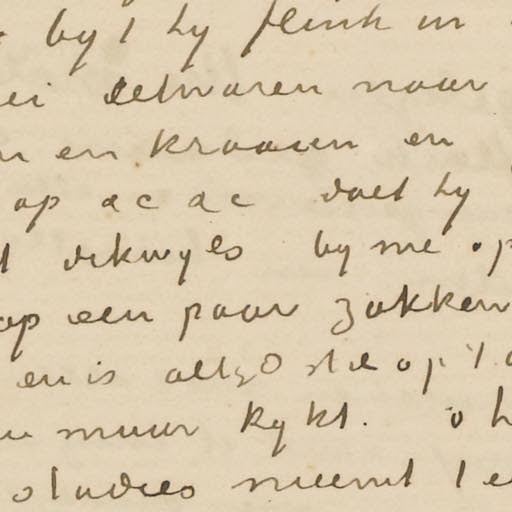 byt hy flink in
ei eetwaren naar
en kraaien en
op ac ac doet hy
dikwyls by me op
op een paar zakken
en is altyd stil op 't
muur kykt. o h
studies neemt